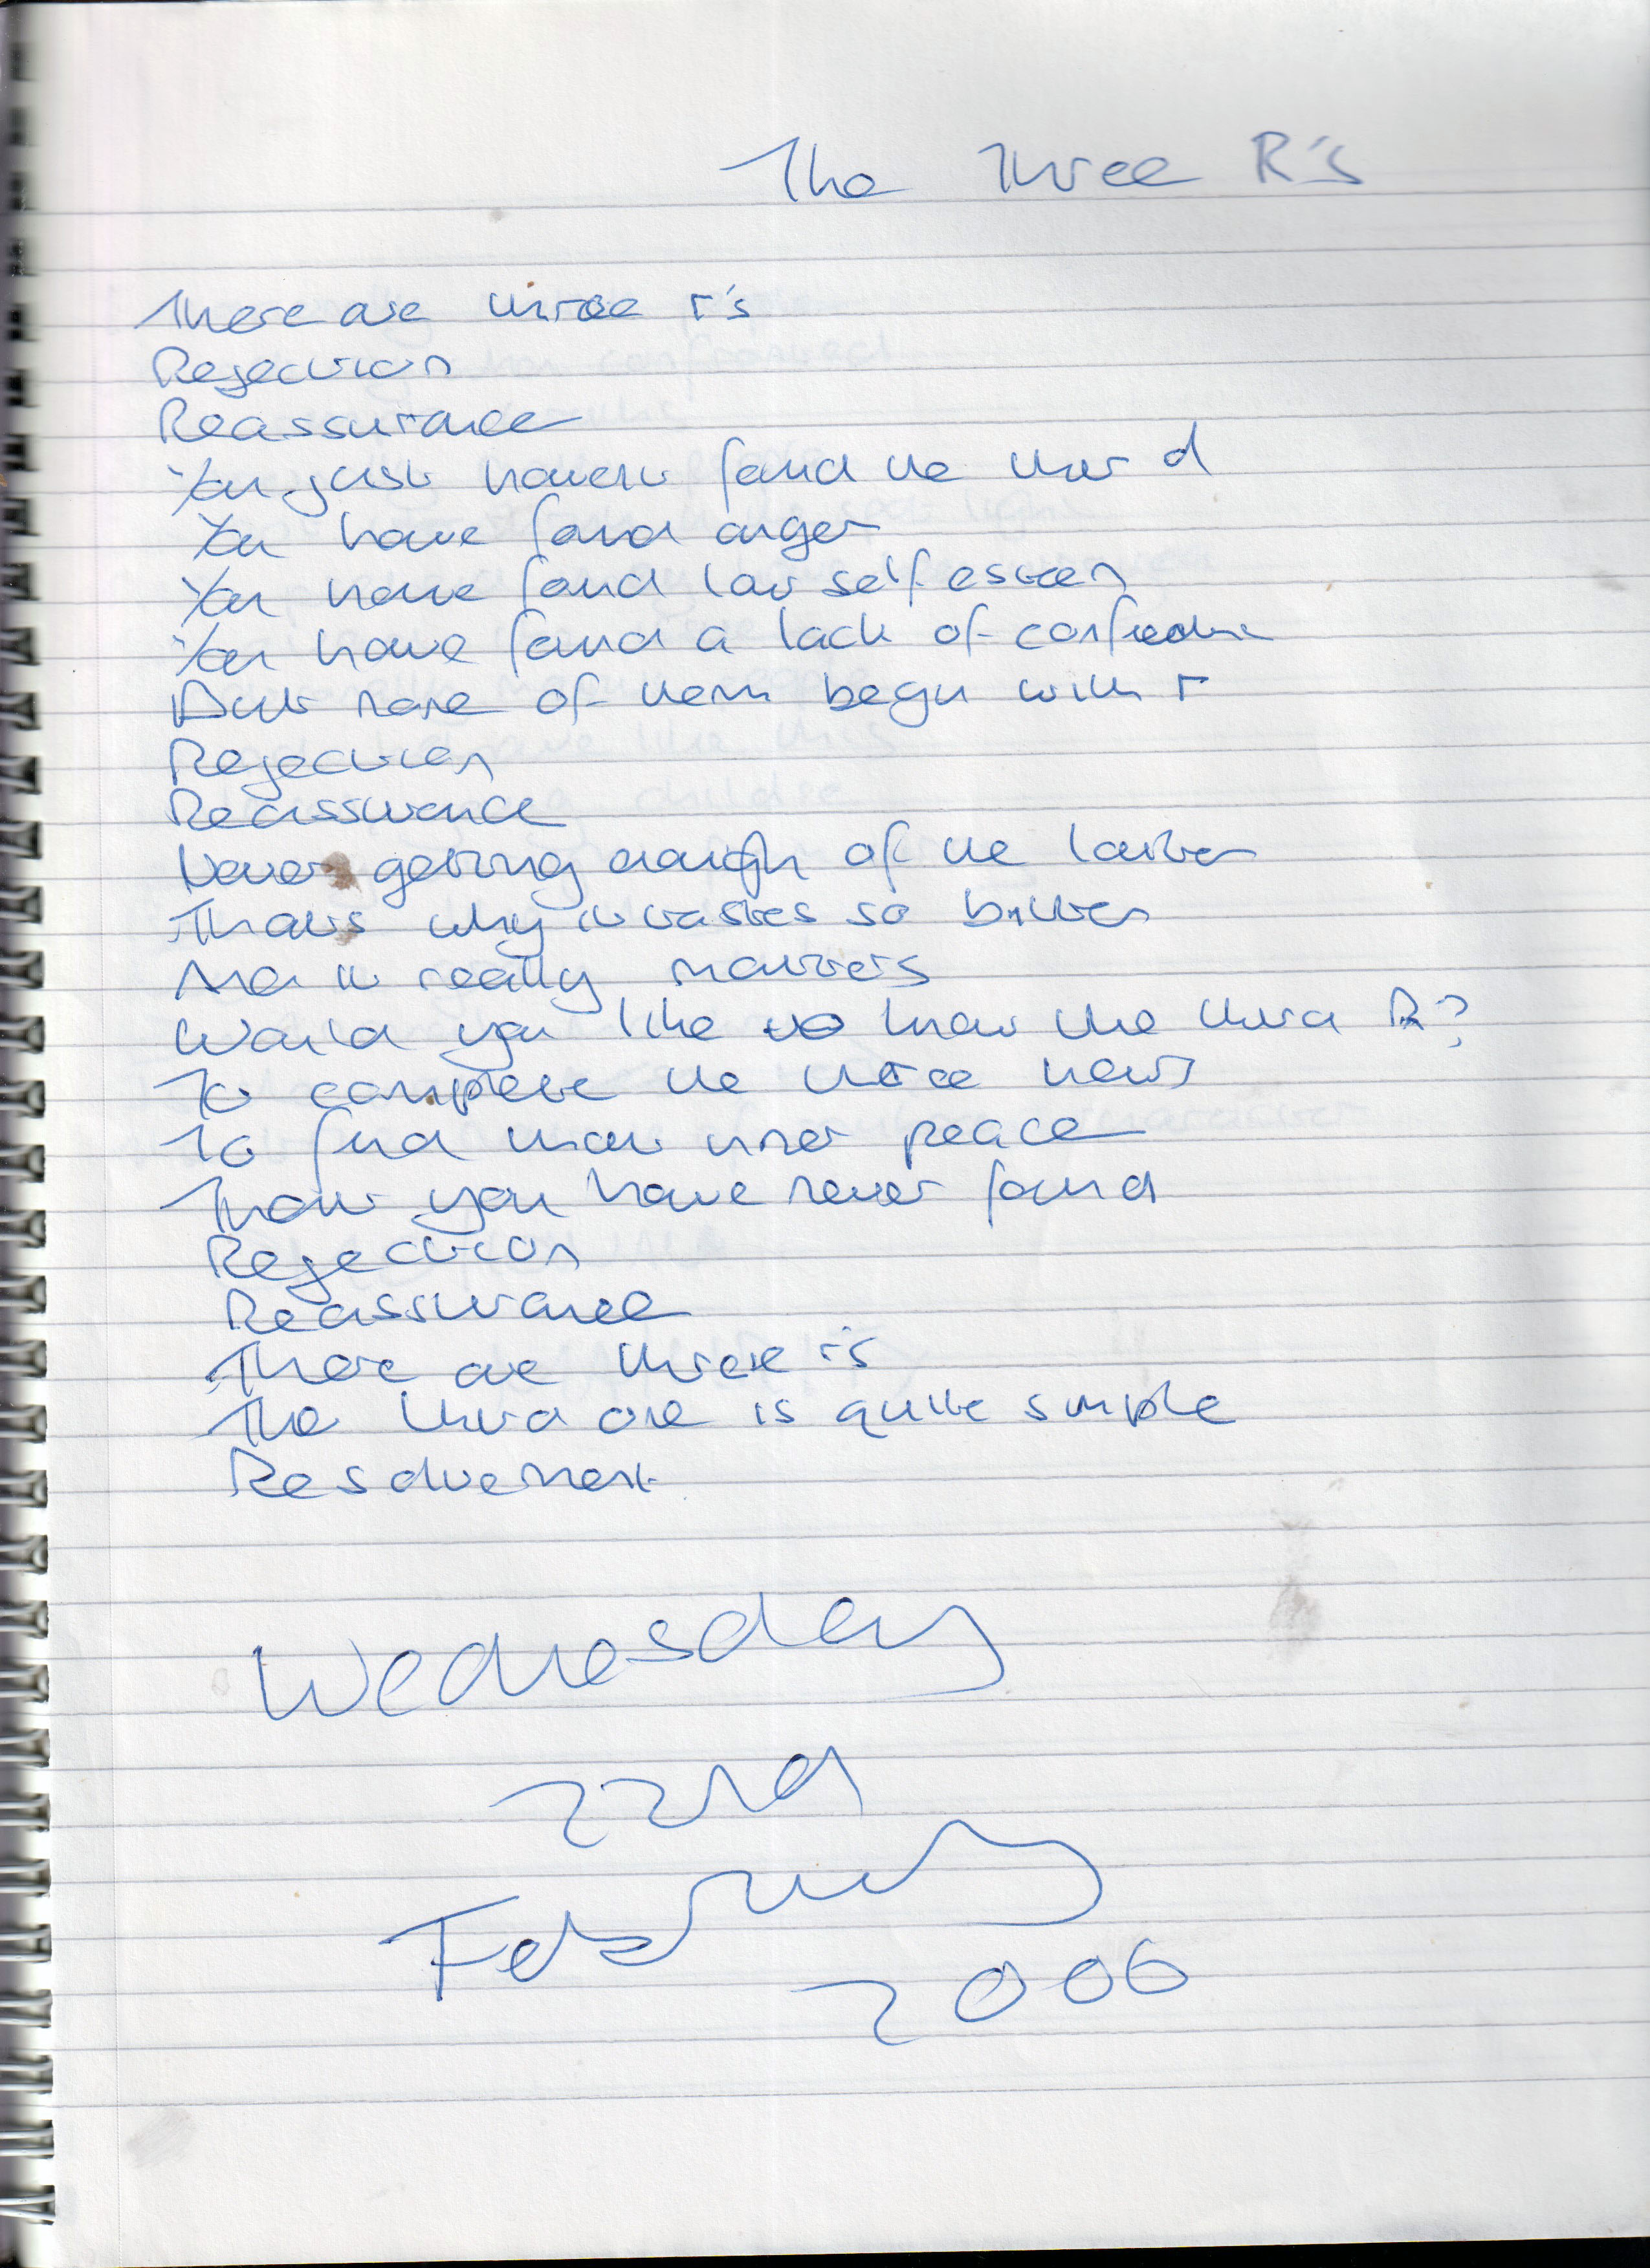 The Three R's
There are three r's
Rejection
Reassurance
You just havent found the third
You have found anger
You have found low self esteem
You have found a lack of confidence
But none of them begin with r
Rejection
Reassurance
Never getting enough of the latter
Thats why it tastes so bitter
And it really matters
Would you like to know the third R?
To complete the three
To find that inner peace
That you have never found
Rejection
Reassurance
There are three r's
The third one is quite simple
Resolvement
Wednesday
22nd
February
2006